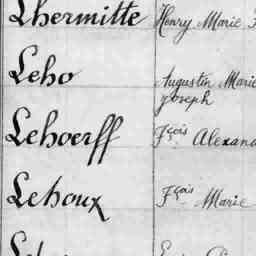 Lhermitte Henry Marie
Leho Augustin Marie
Joseph
Lehoerff Fçois Alexand
Lehoux Fçois Marie